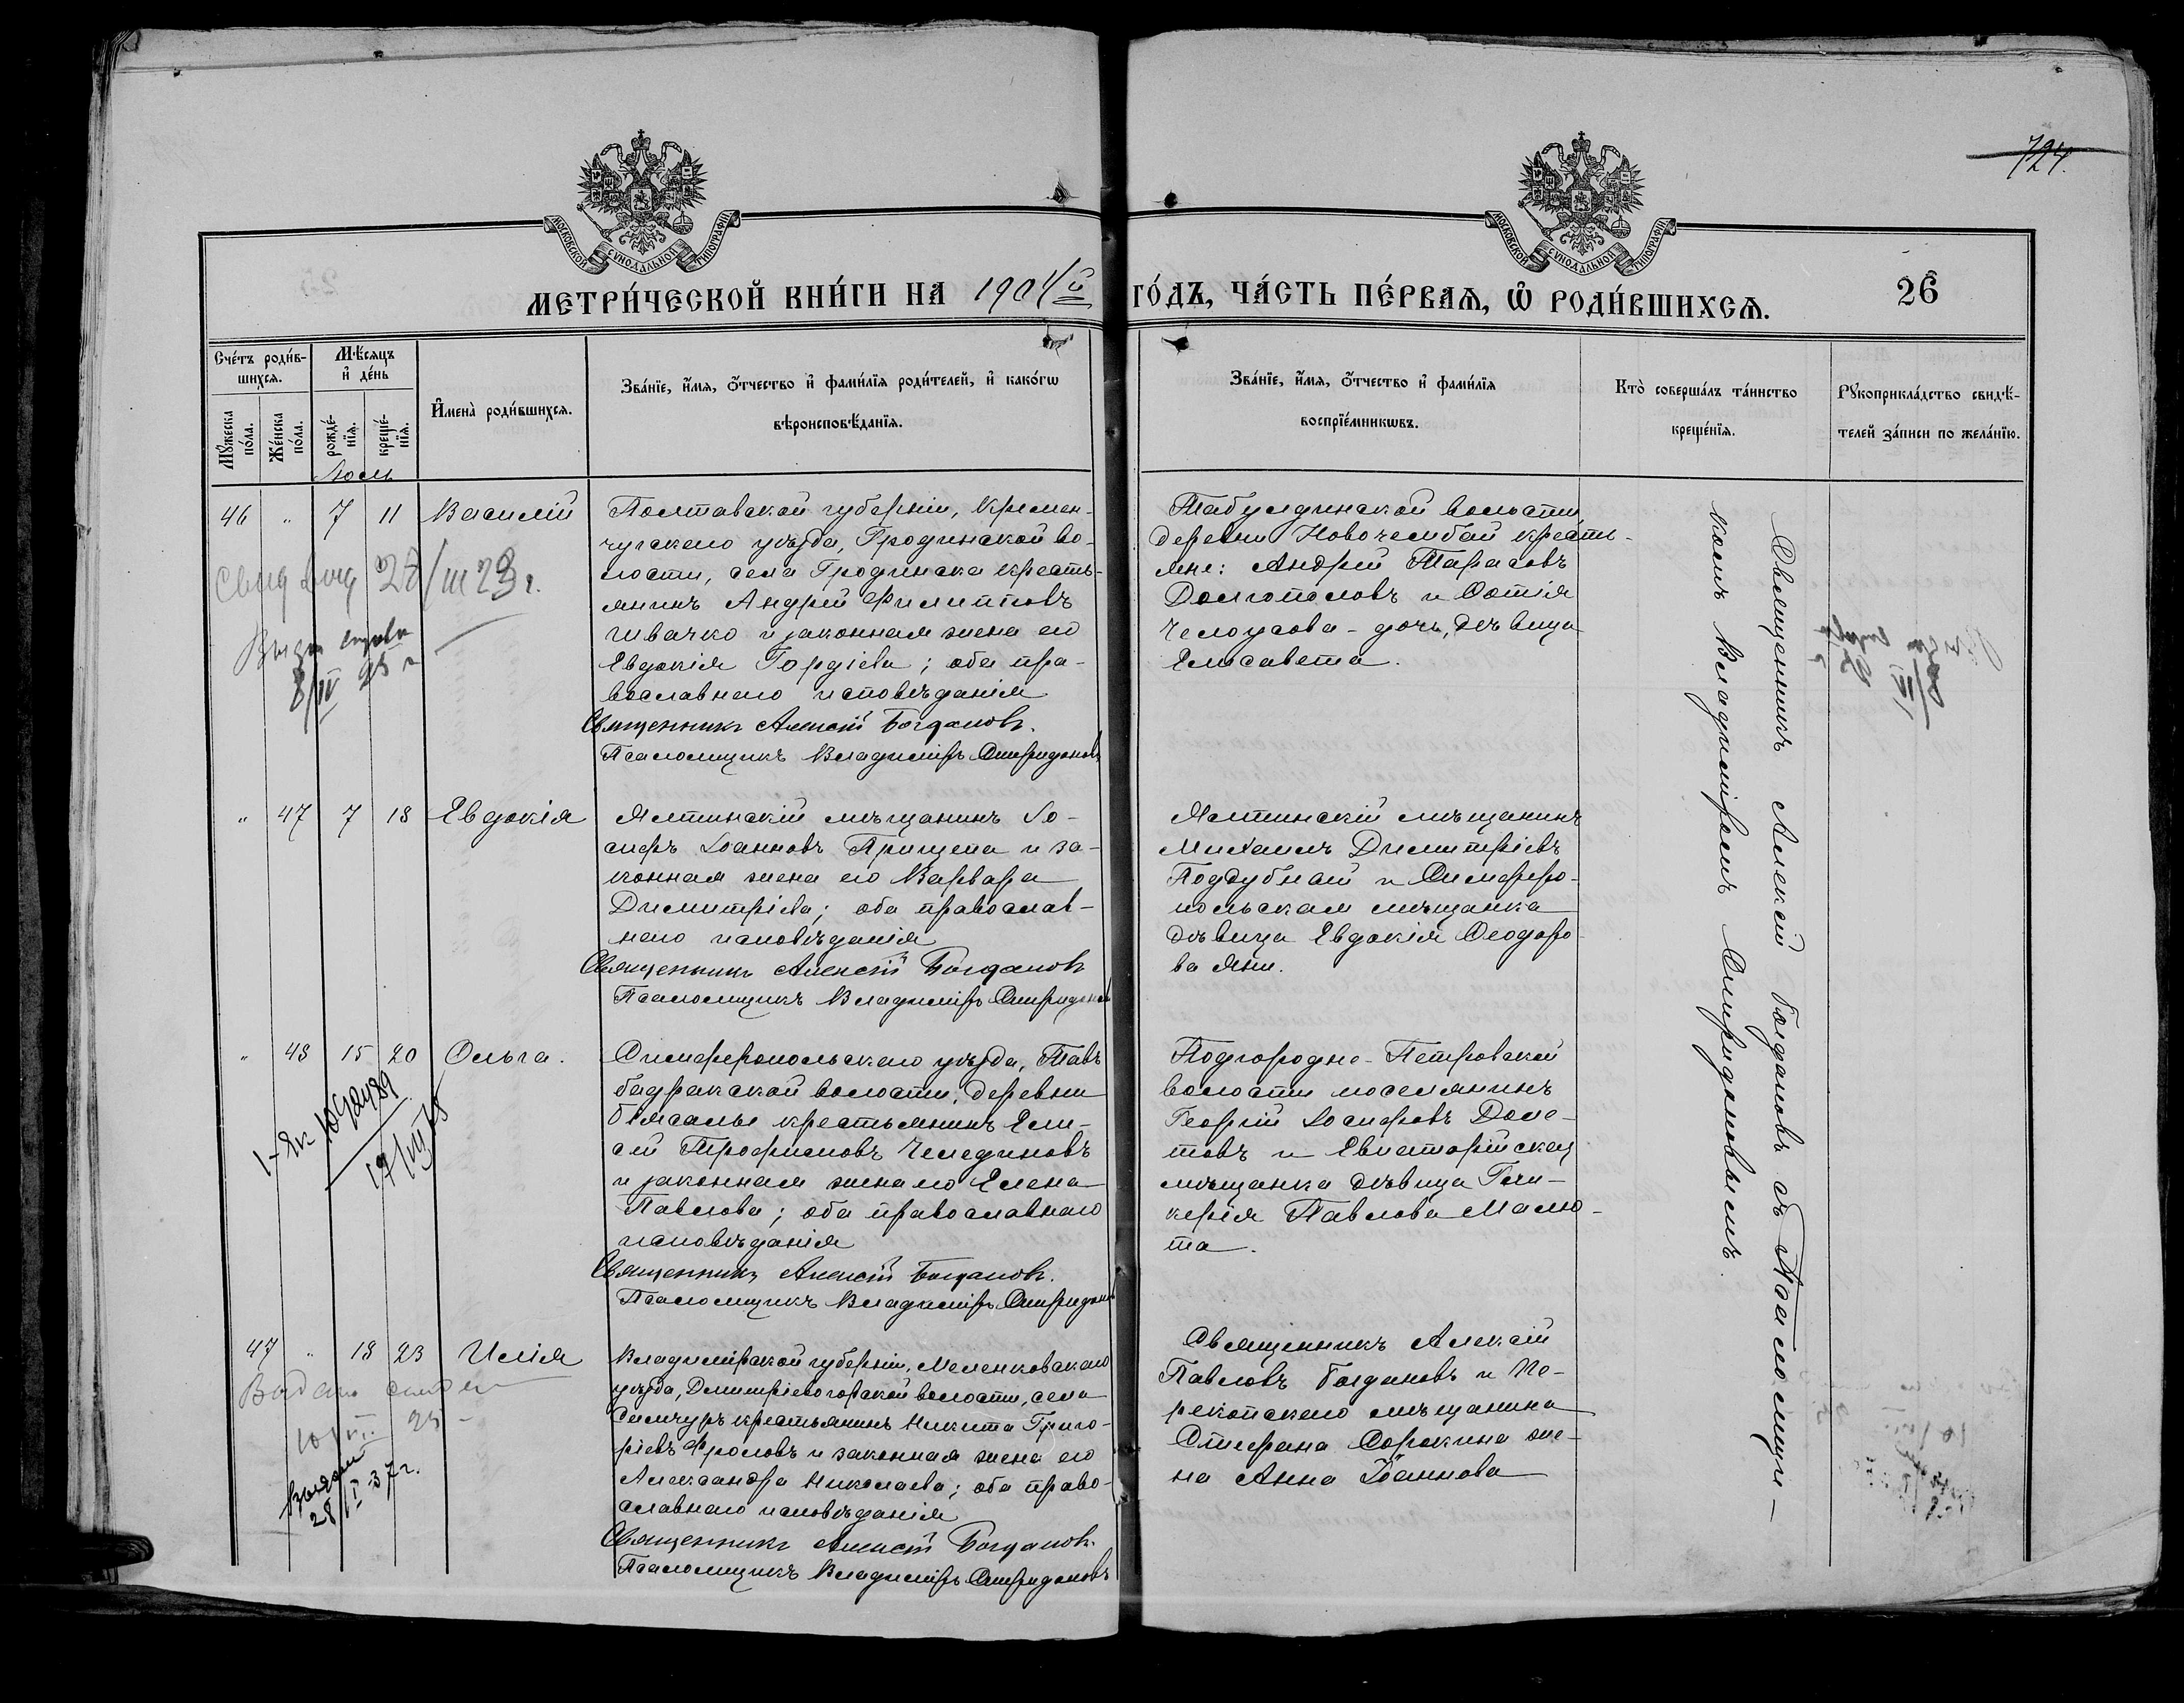 724.
МОСКОВСКОЙ СѴНОДАЛЬНОЙ ТИПОГРАФІИ
МОСКОВСКОЙ СѴНОДАЛЬНОЙ ТИПОГРАФІИ
МЕТРИ́ЧЕСКОЙ КНИ́ГИ НА 1904й
ГО́ДЪ, ЧА́СТЬ ПЕ́РВАѦ, Ѡ҆ РОДИ́ВШИХСѦ.
26
Сче́тъ роди́в-
шихсѧ.
Мѣ́сѧцъ
и҆ де́нь
Мꙋ́жеска
по́ла.
Же́нска
по́ла.
рожде́-
нїѧ.
креще́-
нїѧ.
И҆мена̀ роди́вшихсѧ.
Зва́нїе, и҆́мѧ, ѻ҆́тчество и҆ фами́лїѧ роди́телей, и҆ како́гѡ
вѣроисповѣ́данїѧ.
Зва́нїе, и҆́мѧ, ѻ҆́тчество и҆ фами́лїѧ
воспрїе́мникѡвъ.
Кто̀ соверша́лъ та́инство
креще́нїѧ.
Рꙋкоприкла́дство свидѣ́-
телей за́писи по жела́нїю.
Іюль
46 " 7 11 Василій
Полтавской губерніи, Кремен-
чугскаго уѣзда, Гродинской во-
лости, села Гродинска кресть-
янинъ Андрей Филипповъ
Швачко и законная жена его
Евдокія Гордіева; оба пра-
вославнаго исповѣданія
Священникъ Алексій Богдановъ.
Псаломщикъ Владиміръ Спиридоновъ
Табулдинской волости
деревни Новочелибай крестья-
яне: Андрей Тарасовъ
Долгополовъ и Софія
Челоусова - дочь, дѣвица
Елисавета.
28/III 23 г.
8/IV 25 г
" 47 7 18 Евдокія
Ялтинскій мѣщанинъ Іо-
сифъ Іоанновъ Прищепа и за-
конная жена его Варвара
Димитріева; оба православ-
наго исповѣданія
Священникъ Алексій Богдановъ
Псаломщикъ Владиміръ Спиридоновъ
Ялтинскій мѣщанинъ
Михаилъ Димитріевъ
Поддубный и Симферо-
польская мѣщанка
дѣвица Евдокія Ѳеодоро-
ва Яни.
" 48 15 20 Ольга.
Симферопольскаго уѣзда, Тав-
бадракской волости, деревни
Біясалы крестьянинъ Ели-
сей Трофимовъ Челединовъ
и законная жена его Елена
Павлова; оба православнаго
исповѣданія
Священникъ Алексій Богдановъ.
Псаломщикъ Владиміръ Спиридоновъ
Подгородне-Петровской
волости поселянинъ
Георгій Іосифовъ Доле-
товъ и Евпаторійская
мѣщанка дѣвица Гли-
керія Павлова Малю-
та.
47 " 18 23 Илія
Владимірской губерніи, Меленковскаго
уѣзда, Димитріевогорской волости, села
Синчуръ крестьянинъ Никита Григо-
ріевъ Фроловъ и законная жена его
Александра Николаева; оба право-
славнаго исповѣданія
Священникъ Алексій Богдановъ.
Псаломщикъ Владиміръ Спиридоновъ
Священникъ Алексій
Павловъ Богдановъ и Пе-
рекопскаго мѣщанина
Стефана Сорокина же-
на Анна Іоаннова
28/I 37 г.
Священникъ Алексій Богдановъ съ Псаломщи-
комъ Владиміромъ Спиридоновымъ.